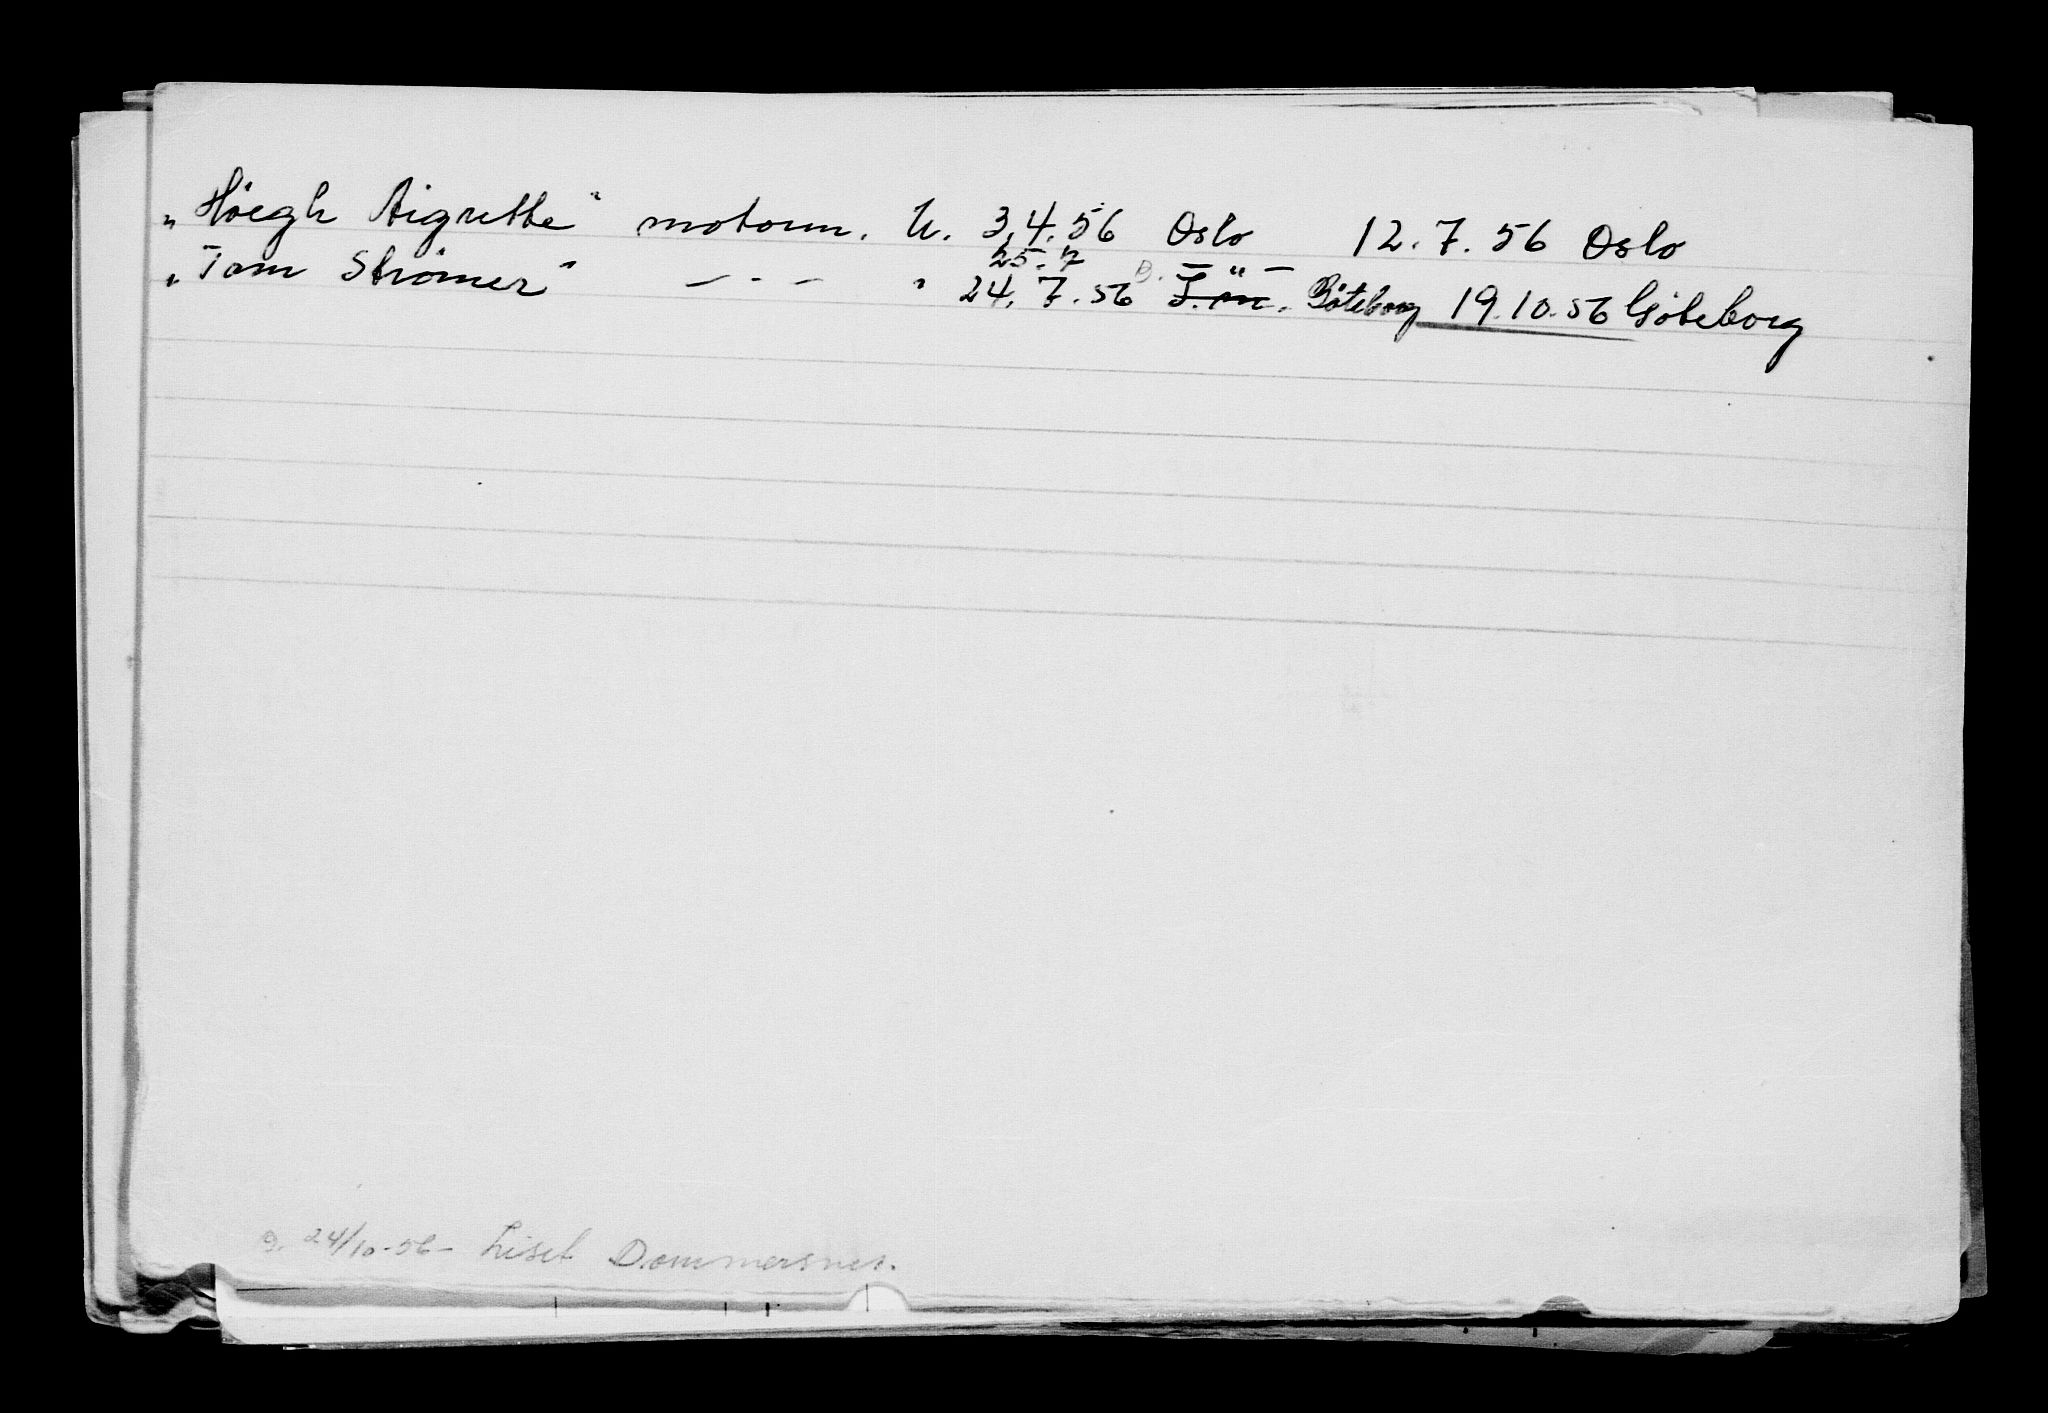 „Höegh Aigrette“ motorm. U. 3.4.56 Oslo 12.7.56 Oslo
25.7 — " —
„Tom Strömer“ — - — " 24.7.56 Göteborg 19.10.56 Göteborg
24/10-56- Liset Dommersnes.